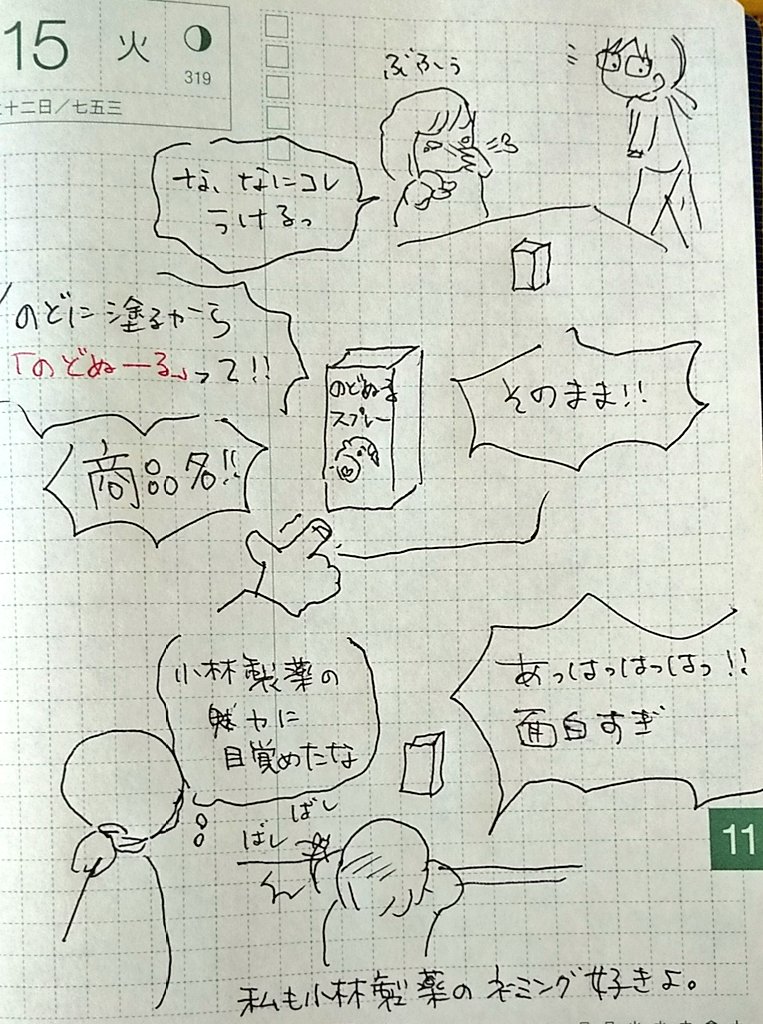 15 火
319
十二日/七五三
ぶふぅ
な、なにコレ
うけるっ
のどに塗るから
「のどぬーる」って!!
のどぬーる
スプレー
そのまま!!
商品名!!
小林製薬の
魅力に
目覚めたな
あっはっはっはっ!!
面白すぎ
ばし
ばし
11
私も小林製薬のネーミング好きよ。